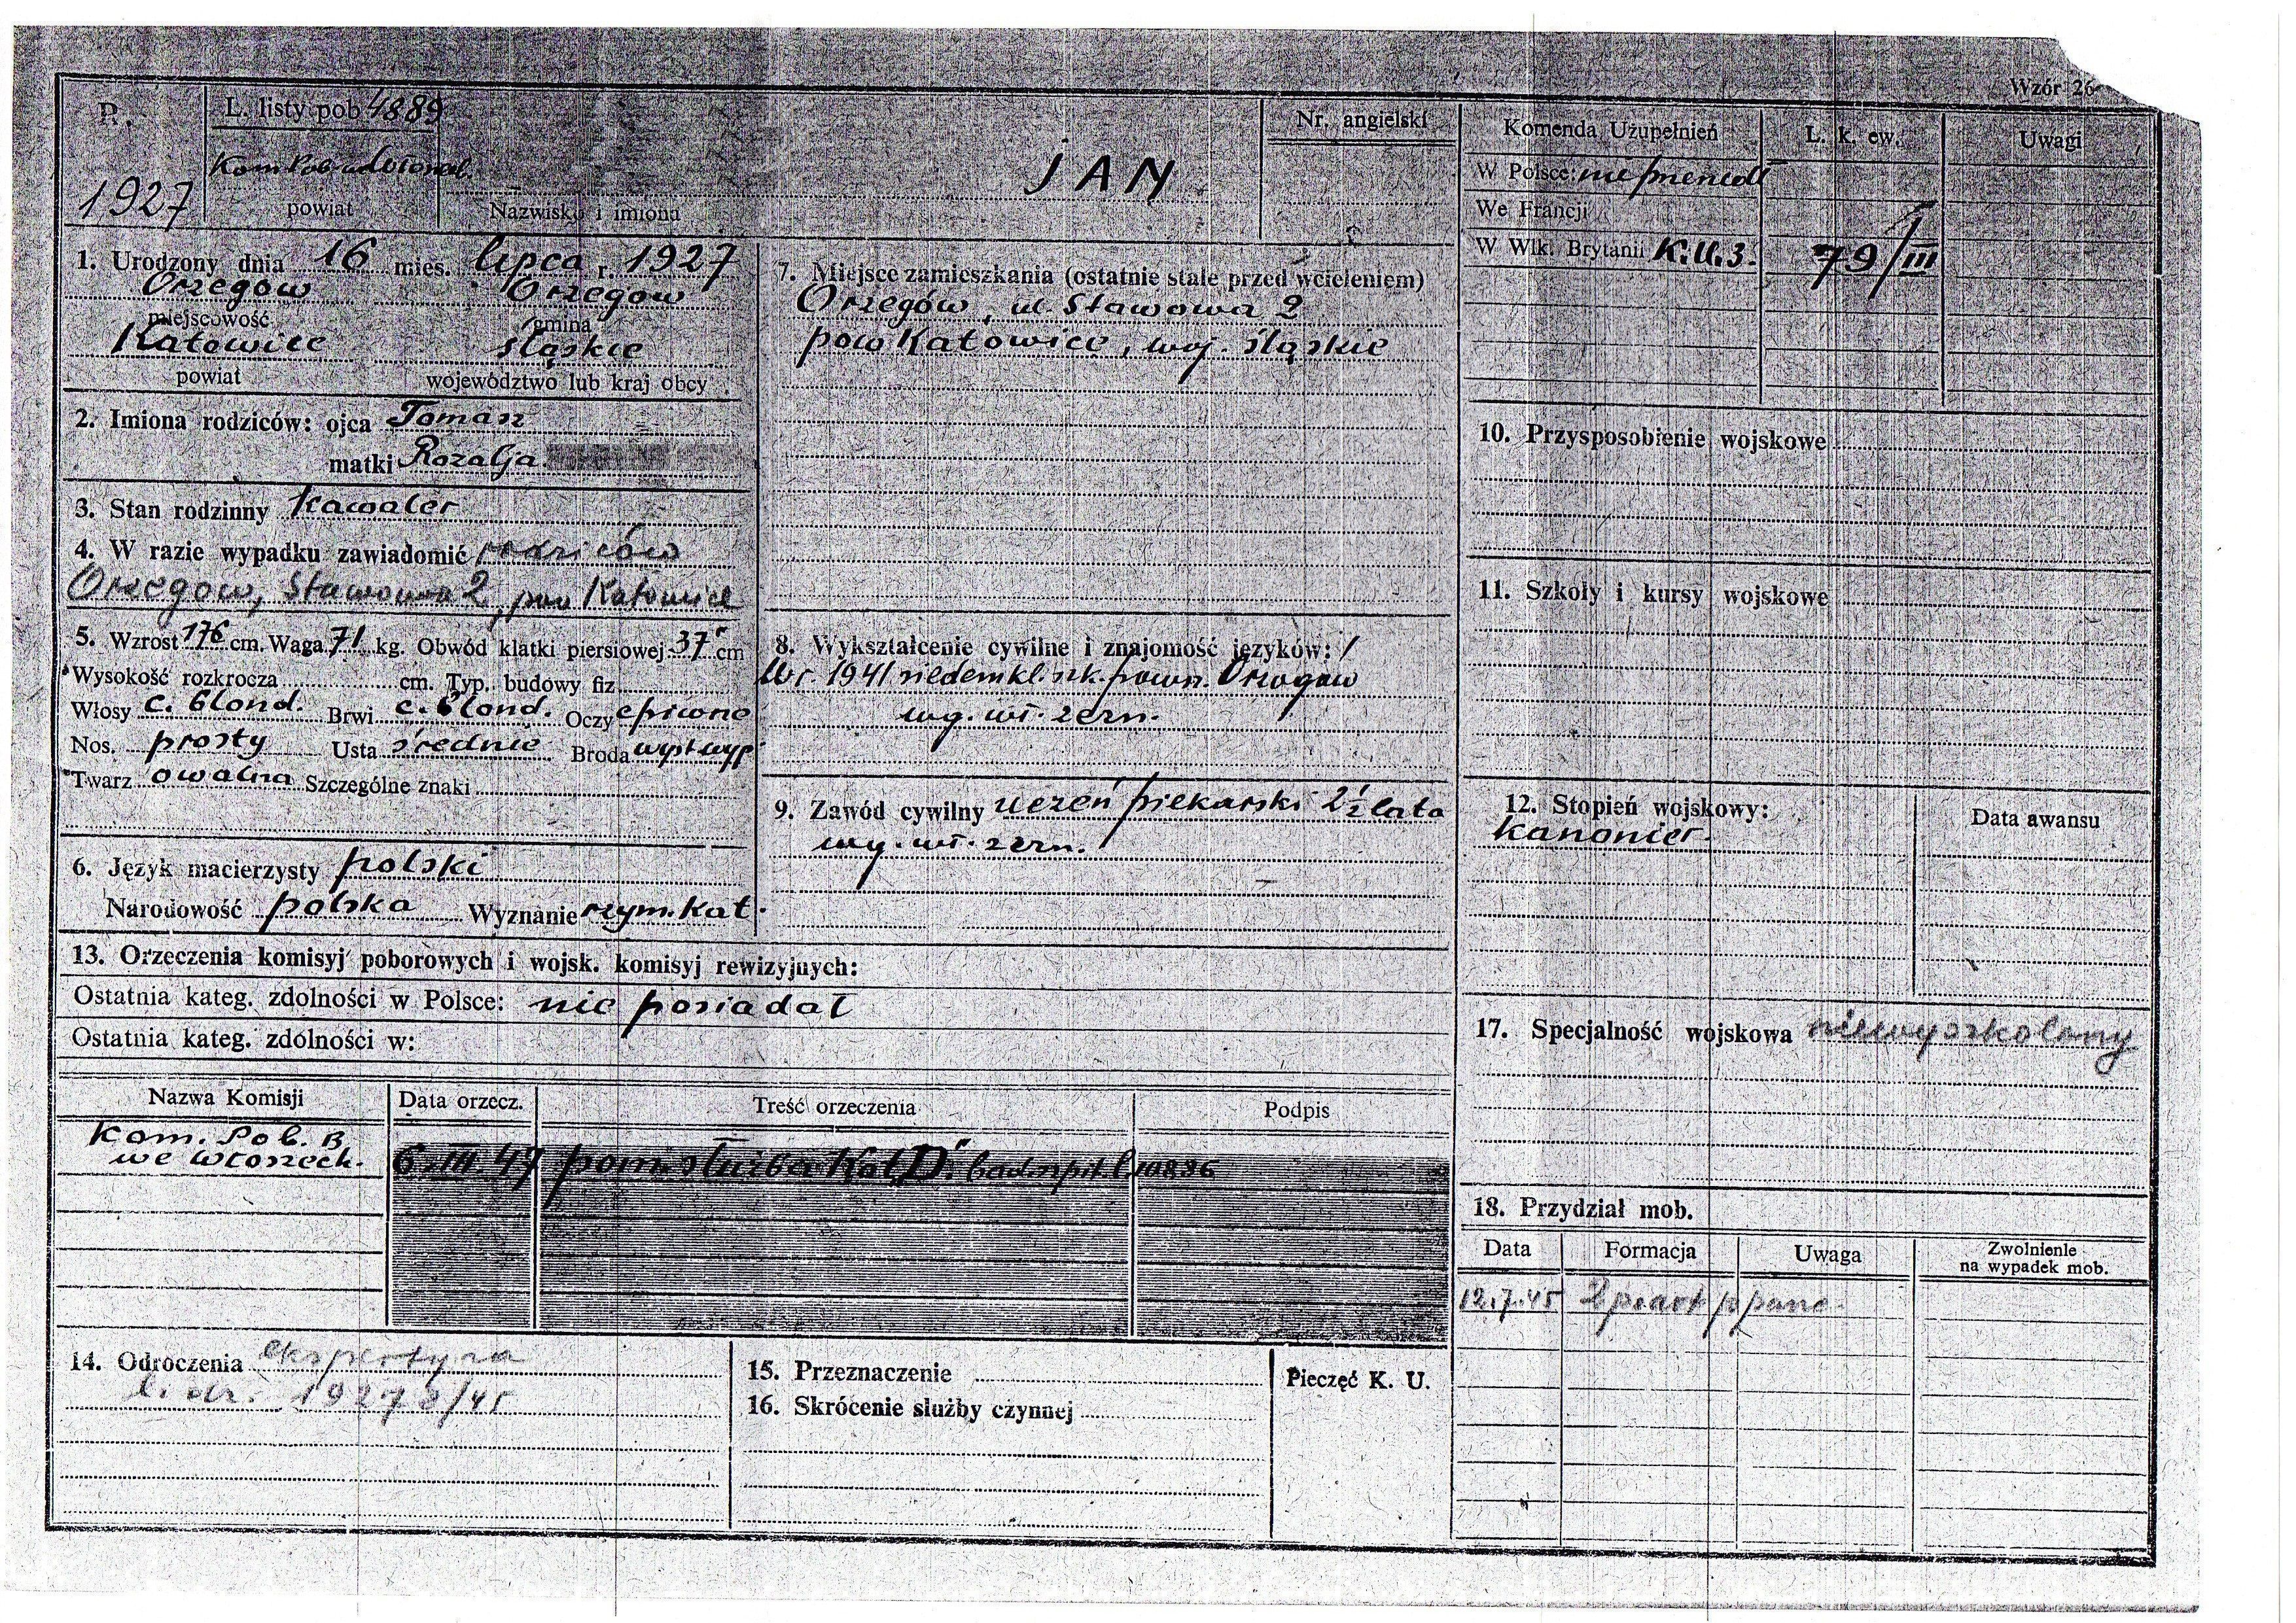 Wzór 26
R. L. listy pob 4889
Nr. angielski
Komenda Uzupełnień L. k. ew. Uwagi
JAN
W Polsce:
1927 powiat Nazwisko i imiona
We Francji
W Wlk. Brytanii K.U.3. 79/III
1. Urodzony dnia 16 mies. lipca r. 1927
Orzegów Orzegow
miejscowość gmina
Katowice śląskie
powiat województwo lub kraj obcy
2. Imiona rodziców: ojca Tomasz
matki Rozalja
3. Stan rodzinny Kawaler
4. W razie wypadku zawiadomić rodziców
Orzegow, Stawowa 2, pow Katowice
5. Wzrost 176 cm. Waga 71 kg. Obwód klatki piersiowej 37" cm
Wysokość rozkrocza cm. Typ. budowy fiz
Włosy c. blond. Brwi c. blond. Oczy
Nos. prosty Usta średnie Broda
Twarz owalna Szczególne znaki
6. Język macierzysty polski
Narodowość polska Wyznanie rzym. Kat.
7. Miejsce zamieszkania (ostatnie stałe przed wcieleniem)
Orzegów, ul. Stawowa 2
pow Katowice, woj. śląskie
8. Wykształcenie cywilne i znajomość języków:
W r. 1941 siedem kl. szk. powsz. Orzegow
wg. wł. zezn.
9. Zawód cywilny uczeń piekarski 2½ lata
wg. wł. zezn.
10. Przysposobienie wojskowe
11. Szkoły i kursy wojskowe
12. Stopień wojskowy: Data awansu
kanonier.
13. Orzeczenia komisyj poborowych i wojsk. komisyj rewizyjnych:
Ostatnia kateg. zdolności w Polsce: nie posiadał
Ostatnia kateg. zdolności w:
Nazwa Komisji Data orzecz. Treść orzeczenia Podpis
Kom. Pob. B
we Włoszech. 6.III.47 pom. służba Kat. "D"
14. Odroczenia ekspertyza
15. Przeznaczenie
16. Skrócenie służby czynnej
Pieczęć K. U.
17. Specjalność wojskowa niewyszkolony
18. Przydział mob.
Data Formacja Uwaga Zwolnienie
na wypadek mob.
12.7.45 2 p. art. ppanc.